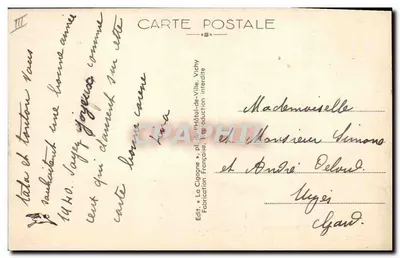 III
CARTE POSTALE
tata et tonton vous
souhaitent une bonne année
1940. Soyez joyeux comme
ceux qui dansent sur cette
carte bonne
Edit. "La Cigogne", pl. Hôtel-de-Ville, Vichy
Fabrication Française, Reproduction interdite
Mademoiselle
et Monsieur Simone
et André
Uzès
Gard.